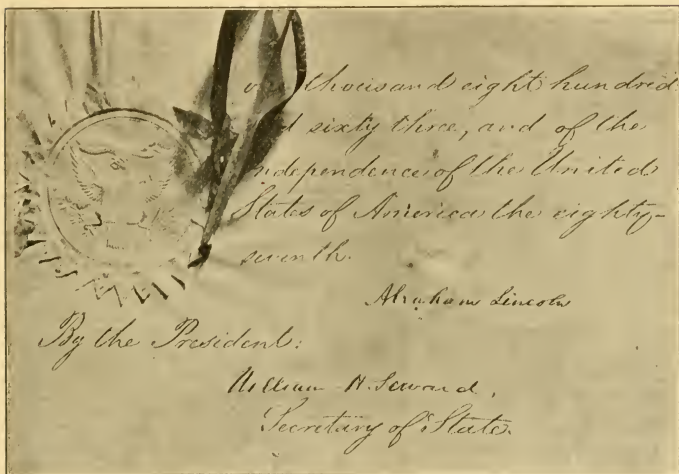 one thousand eight hundred
d sixty three, and of the
ndependence of the United
States of America the eighty-
seventh.
Abraham Lincoln
By the President:
William H. Seward,
Secretary of State.